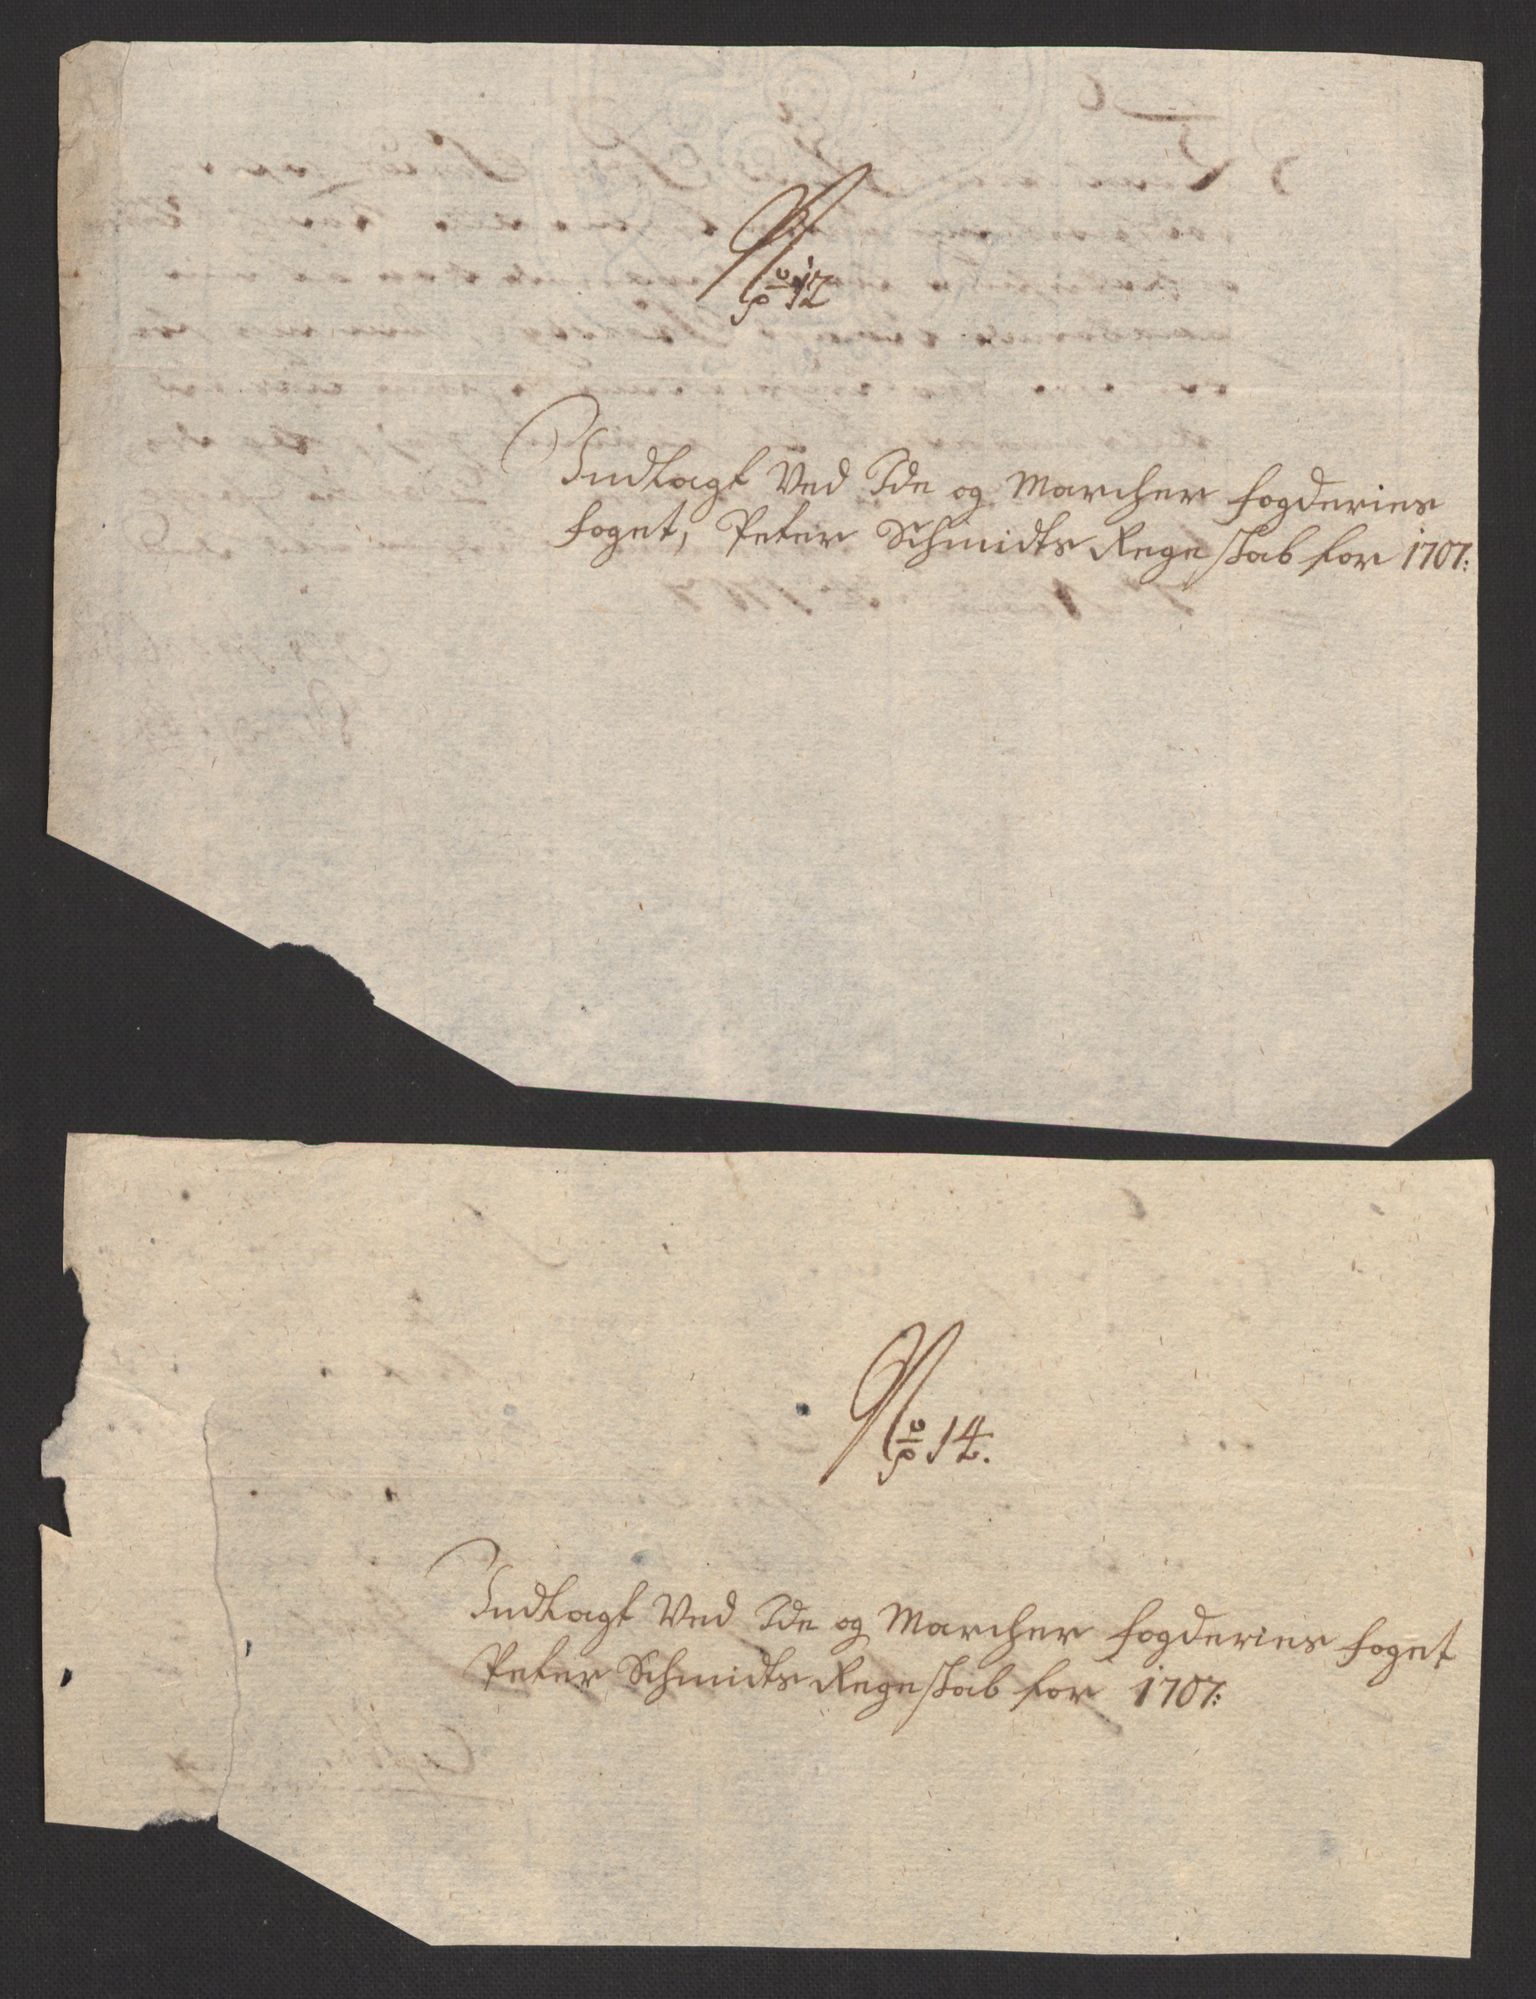 No 12
Indlagt Ved Ide og Marcher fogderies
foget, Peter Schmidts Regeskab for 1707:
No 14.
Indlagt Ved Ide og Marcher fogderies foget
Peter Schmidts Regeskab for 1707: